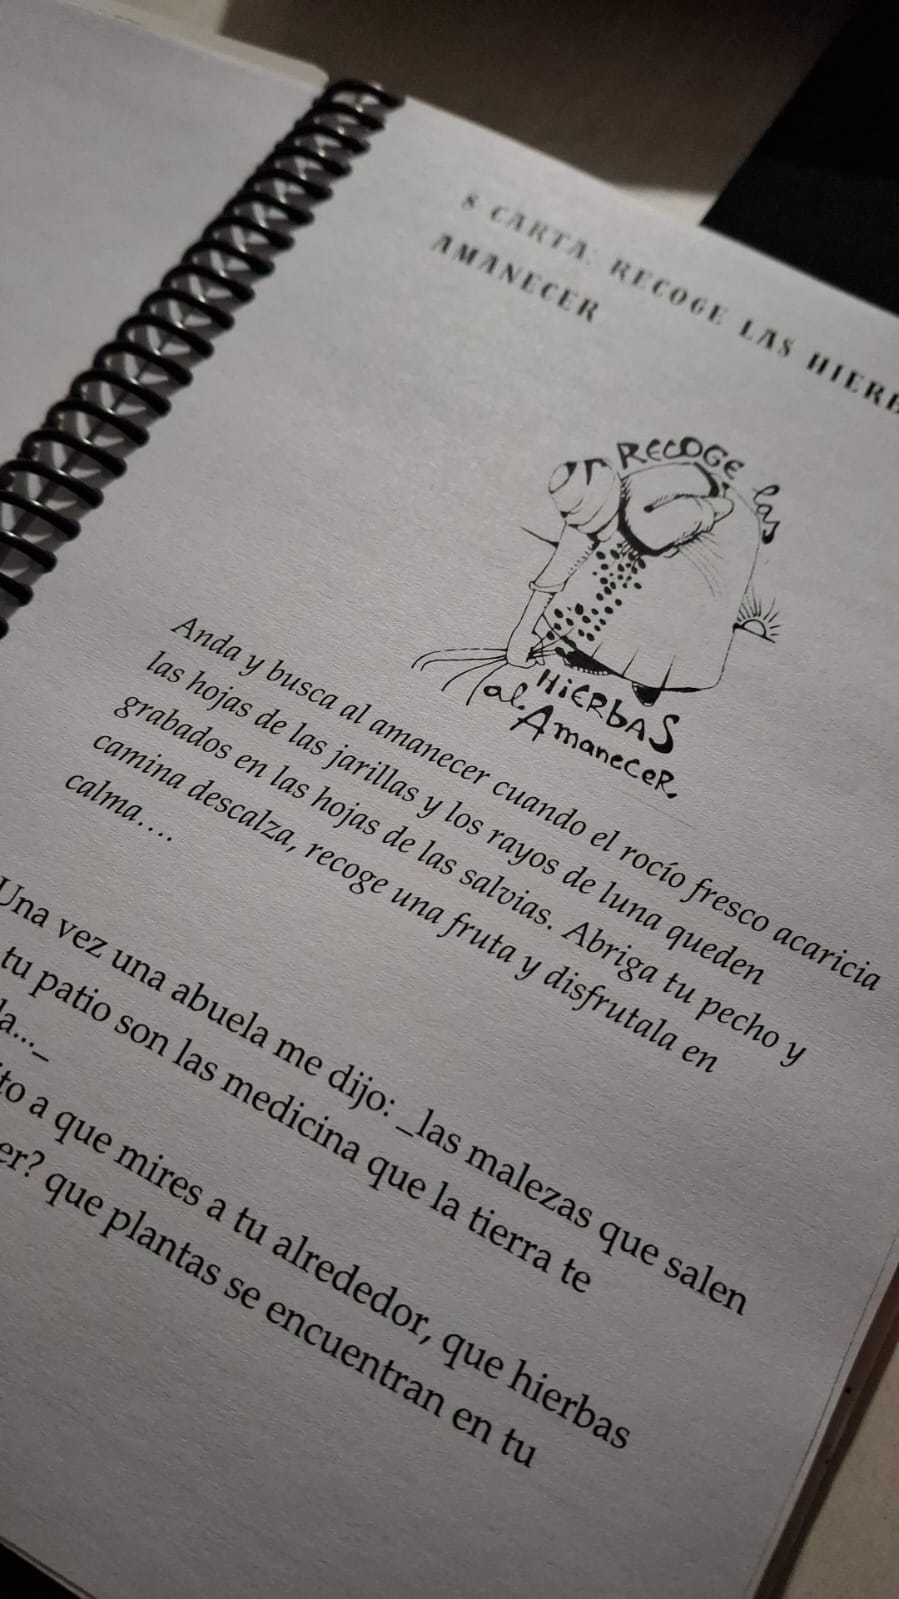 8 CARTA: RECOGE LAS
AMANECER
RECOGE las
HiERbAS
al AmaneceR.
Anda y busca al amanecer cuando el rocío fresco acaricia
las hojas de las jarillas y los rayos de luna queden
grabados en las hojas de las salvias. Abriga tu pecho y
camina descalza, recoge una fruta y disfrutala en
calma....
Una vez una abuela me dijo: _las malezas que salen
tu patio son las medicina que la tierra te
a que mires a tu alrededor, que hierbas
que plantas se encuentran en tu